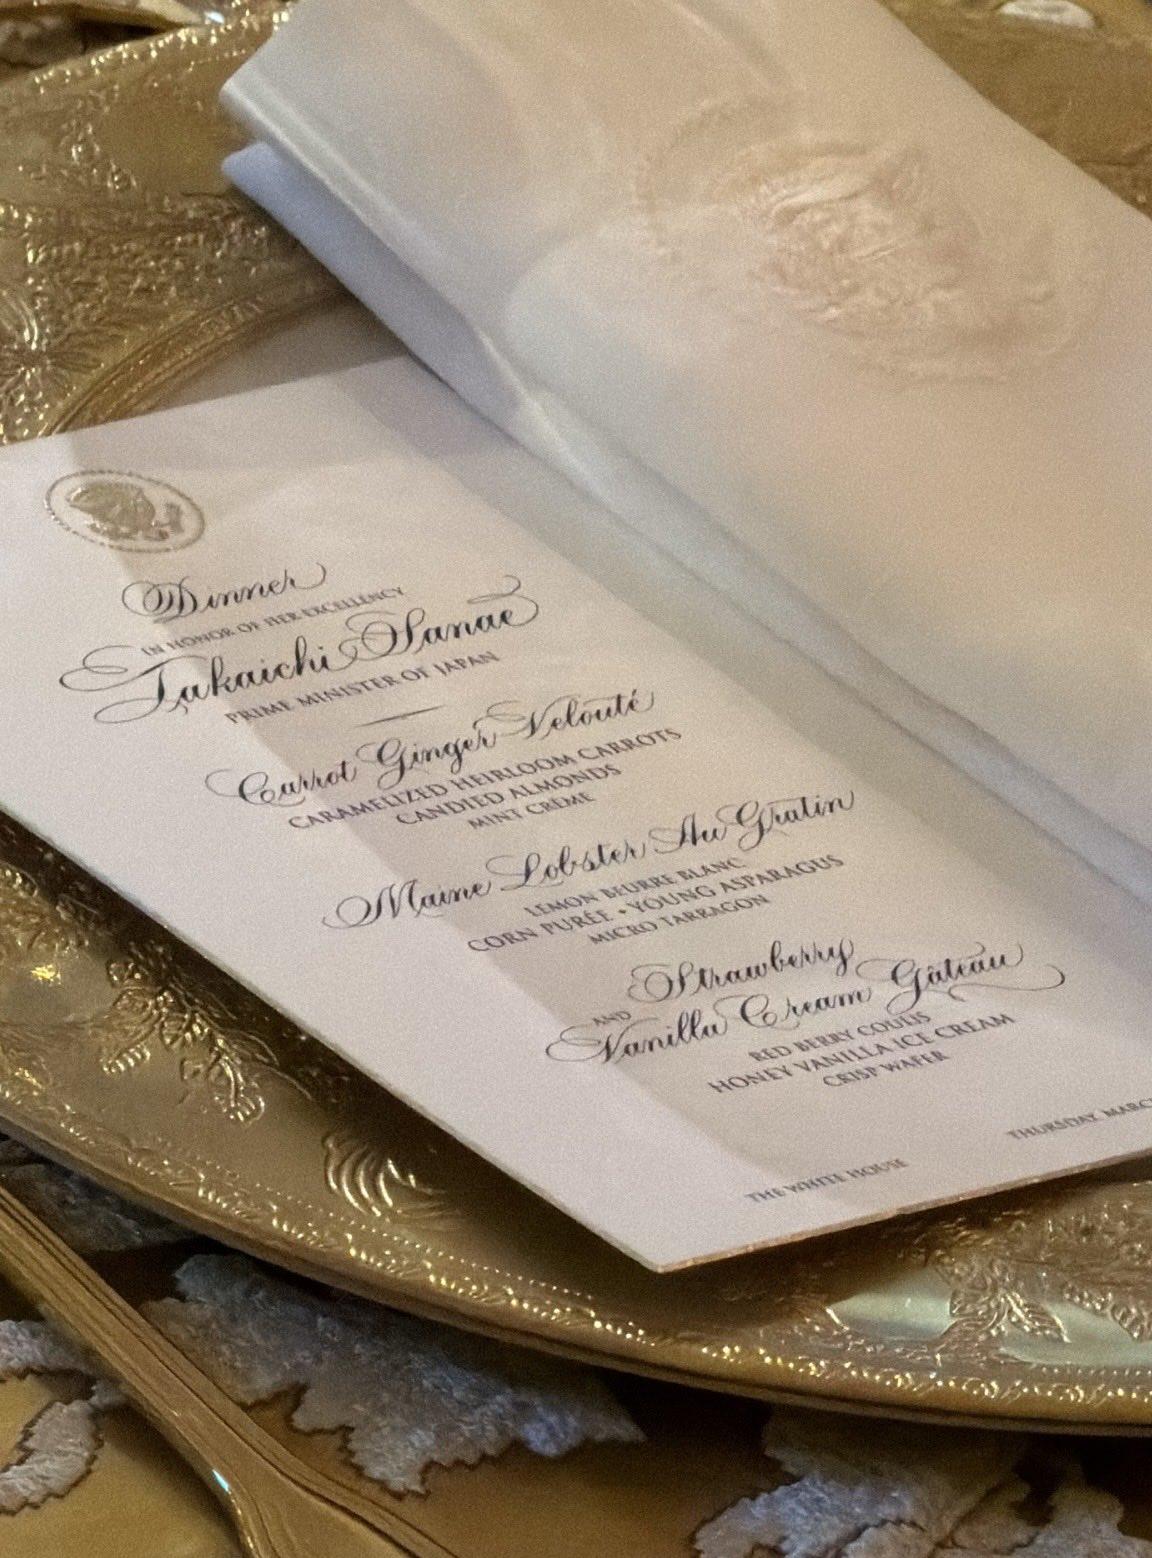 Dinner
IN HONOR OF HER EXCELLENCY
Takaichi Sanae
PRIME MINISTER OF JAPAN
Carrot Ginger Velouté
CARAMELIZED HEIRLOOM CARROTS
CANDIED ALMONDS
MINT CRÈME
Maine Lobster Au Gratin
LEMON BEURRE BLANC
CORN PURÉE • YOUNG ASPARAGUS
MICRO TARRAGON
Strawberry
AND
Vanilla Cream Gâteau
RED BERRY COULIS
HONEY VANILLA ICE CREAM
CRISP WAFER
THE WHITE HOUSE
THURSDAY, MARC